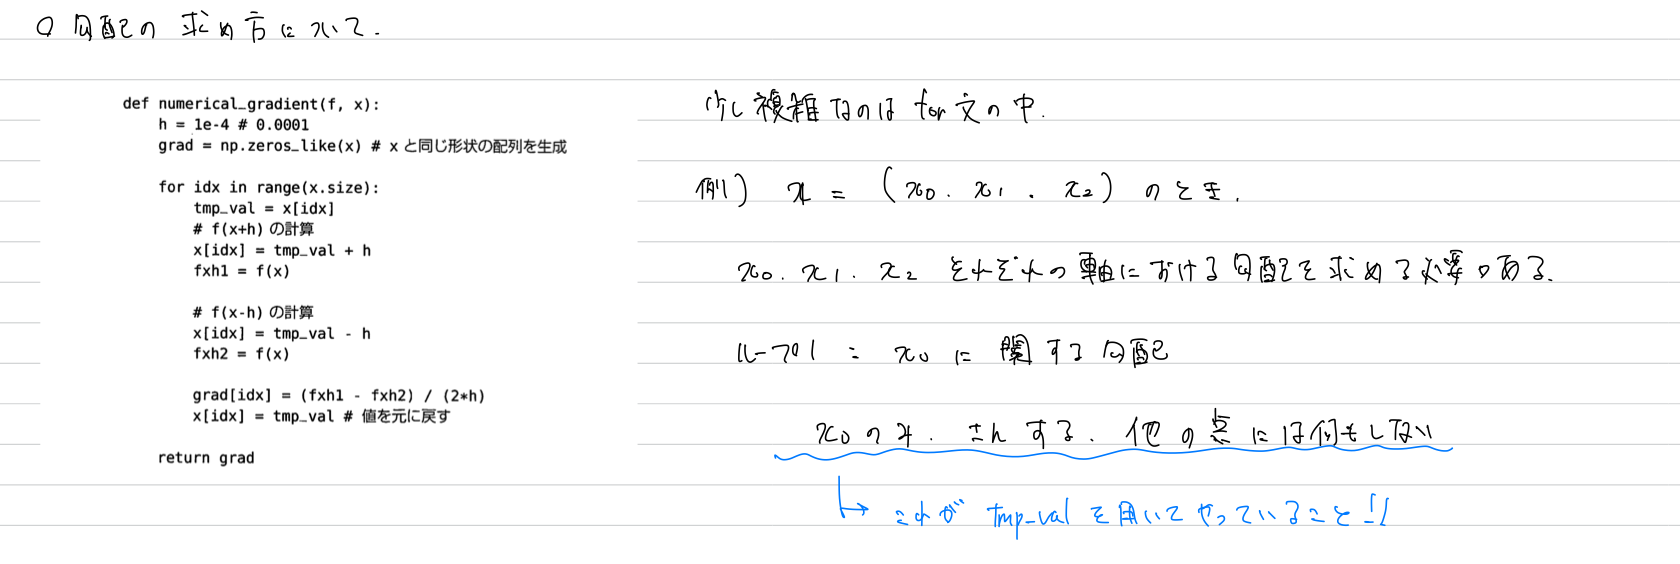 ○ 勾配の求め方について.
def numerical_gradient(f, x):
    h = 1e-4 # 0.0001
    grad = np.zeros_like(x) # x と同じ形状の配列を生成
    for idx in range(x.size):
        tmp_val = x[idx]
        # f(x+h) の計算
        x[idx] = tmp_val + h
        fxh1 = f(x)
        # f(x-h) の計算
        x[idx] = tmp_val - h
        fxh2 = f(x)
        grad[idx] = (fxh1 - fxh2) / (2*h)
        x[idx] = tmp_val # 値を元に戻す
    return grad
少し複雑なのは for 文の中.
例) x = (x0. x1. x2) のとき.
x0. x1. x2 それぞれの軸における勾配を求める必要がある.
ループ1 : x0 に関する勾配
x0のみ. ±hする. 他の点には何もしない
↳ これが tmp_val を用いてやっていること!!